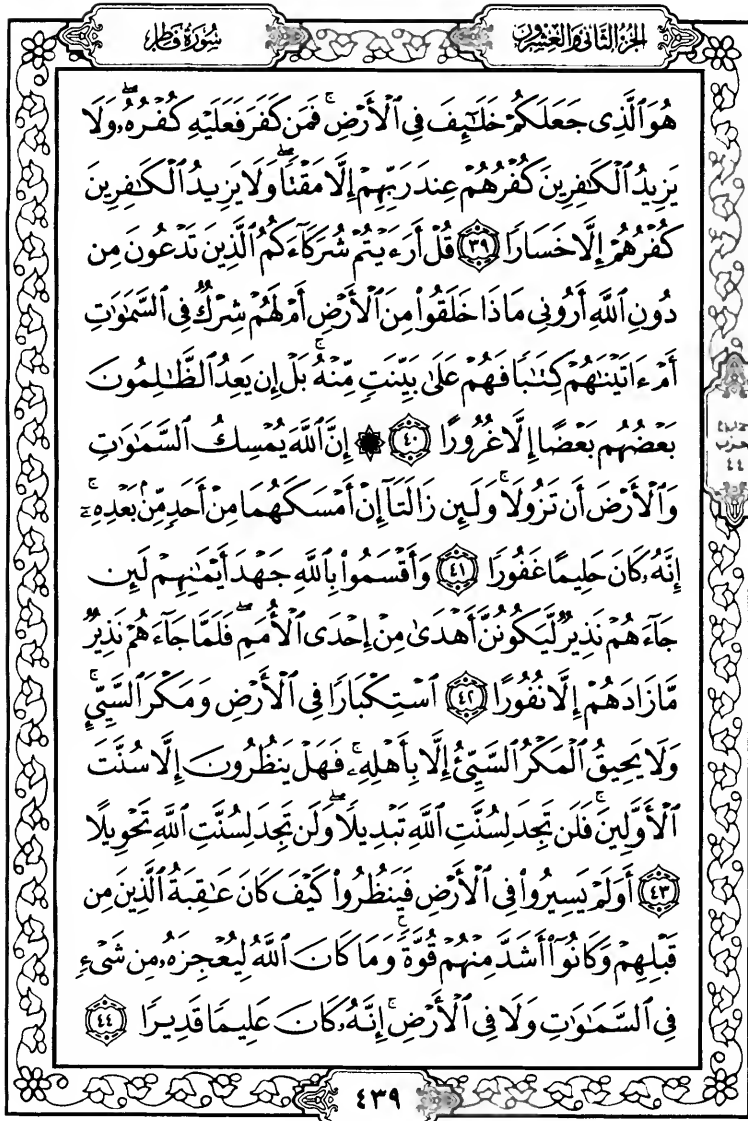 الجزء الثاني والعشرون
سورة فاطر
هُوَ ٱلَّذِى جَعَلَكُمْ خَلَـٰٓئِفَ فِى ٱلْأَرْضِ ۚ فَمَن كَفَرَ فَعَلَيْهِ كُفْرُهُۥ ۖ وَلَا
يَزِيدُ ٱلْكَـٰفِرِينَ كُفْرُهُمْ عِندَ رَبِّهِمْ إِلَّا مَقْتًا ۖ وَلَا يَزِيدُ ٱلْكَـٰفِرِينَ
كُفْرُهُمْ إِلَّا خَسَارًا ٣٩ قُلْ أَرَءَيْتُمْ شُرَكَآءَكُمُ ٱلَّذِينَ تَدْعُونَ مِن
دُونِ ٱللَّهِ أَرُونِى مَاذَا خَلَقُوا۟ مِنَ ٱلْأَرْضِ أَمْ لَهُمْ شِرْكٌ فِى ٱلسَّمَـٰوَٰتِ
أَمْ ءَاتَيْنَـٰهُمْ كِتَـٰبًا فَهُمْ عَلَىٰ بَيِّنَتٍ مِّنْهُ ۚ بَلْ إِن يَعِدُ ٱلظَّـٰلِمُونَ
بَعْضُهُم بَعْضًا إِلَّا غُرُورًا ٤٠ ۞ إِنَّ ٱللَّهَ يُمْسِكُ ٱلسَّمَـٰوَٰتِ
وَٱلْأَرْضَ أَن تَزُولَا ۚ وَلَئِن زَالَتَآ إِنْ أَمْسَكَهُمَا مِنْ أَحَدٍ مِّنۢ بَعْدِهِۦٓ ۚ
إِنَّهُۥ كَانَ حَلِيمًا غَفُورًا ٤١ وَأَقْسَمُوا۟ بِٱللَّهِ جَهْدَ أَيْمَـٰنِهِمْ لَئِن
جَآءَهُمْ نَذِيرٌ لَّيَكُونُنَّ أَهْدَىٰ مِنْ إِحْدَى ٱلْأُمَمِ ۖ فَلَمَّا جَآءَهُمْ نَذِيرٌ
مَّا زَادَهُمْ إِلَّا نُفُورًا ٤٢ ٱسْتِكْبَارًا فِى ٱلْأَرْضِ وَمَكْرَ ٱلسَّيِّئِ ۚ
وَلَا يَحِيقُ ٱلْمَكْرُ ٱلسَّيِّئُ إِلَّا بِأَهْلِهِۦ ۚ فَهَلْ يَنظُرُونَ إِلَّا سُنَّتَ
ٱلْأَوَّلِينَ ۚ فَلَن تَجِدَ لِسُنَّتِ ٱللَّهِ تَبْدِيلًا ۖ وَلَن تَجِدَ لِسُنَّتِ ٱللَّهِ تَحْوِيلًا
٤٣ أَوَلَمْ يَسِيرُوا۟ فِى ٱلْأَرْضِ فَيَنظُرُوا۟ كَيْفَ كَانَ عَـٰقِبَةُ ٱلَّذِينَ مِن
قَبْلِهِمْ وَكَانُوٓا۟ أَشَدَّ مِنْهُمْ قُوَّةً ۚ وَمَا كَانَ ٱللَّهُ لِيُعْجِزَهُۥ مِن شَىْءٍ
فِى ٱلسَّمَـٰوَٰتِ وَلَا فِى ٱلْأَرْضِ ۚ إِنَّهُۥ كَانَ عَلِيمًا قَدِيرًا ٤٤
حزب
٤٤
٤٣٩